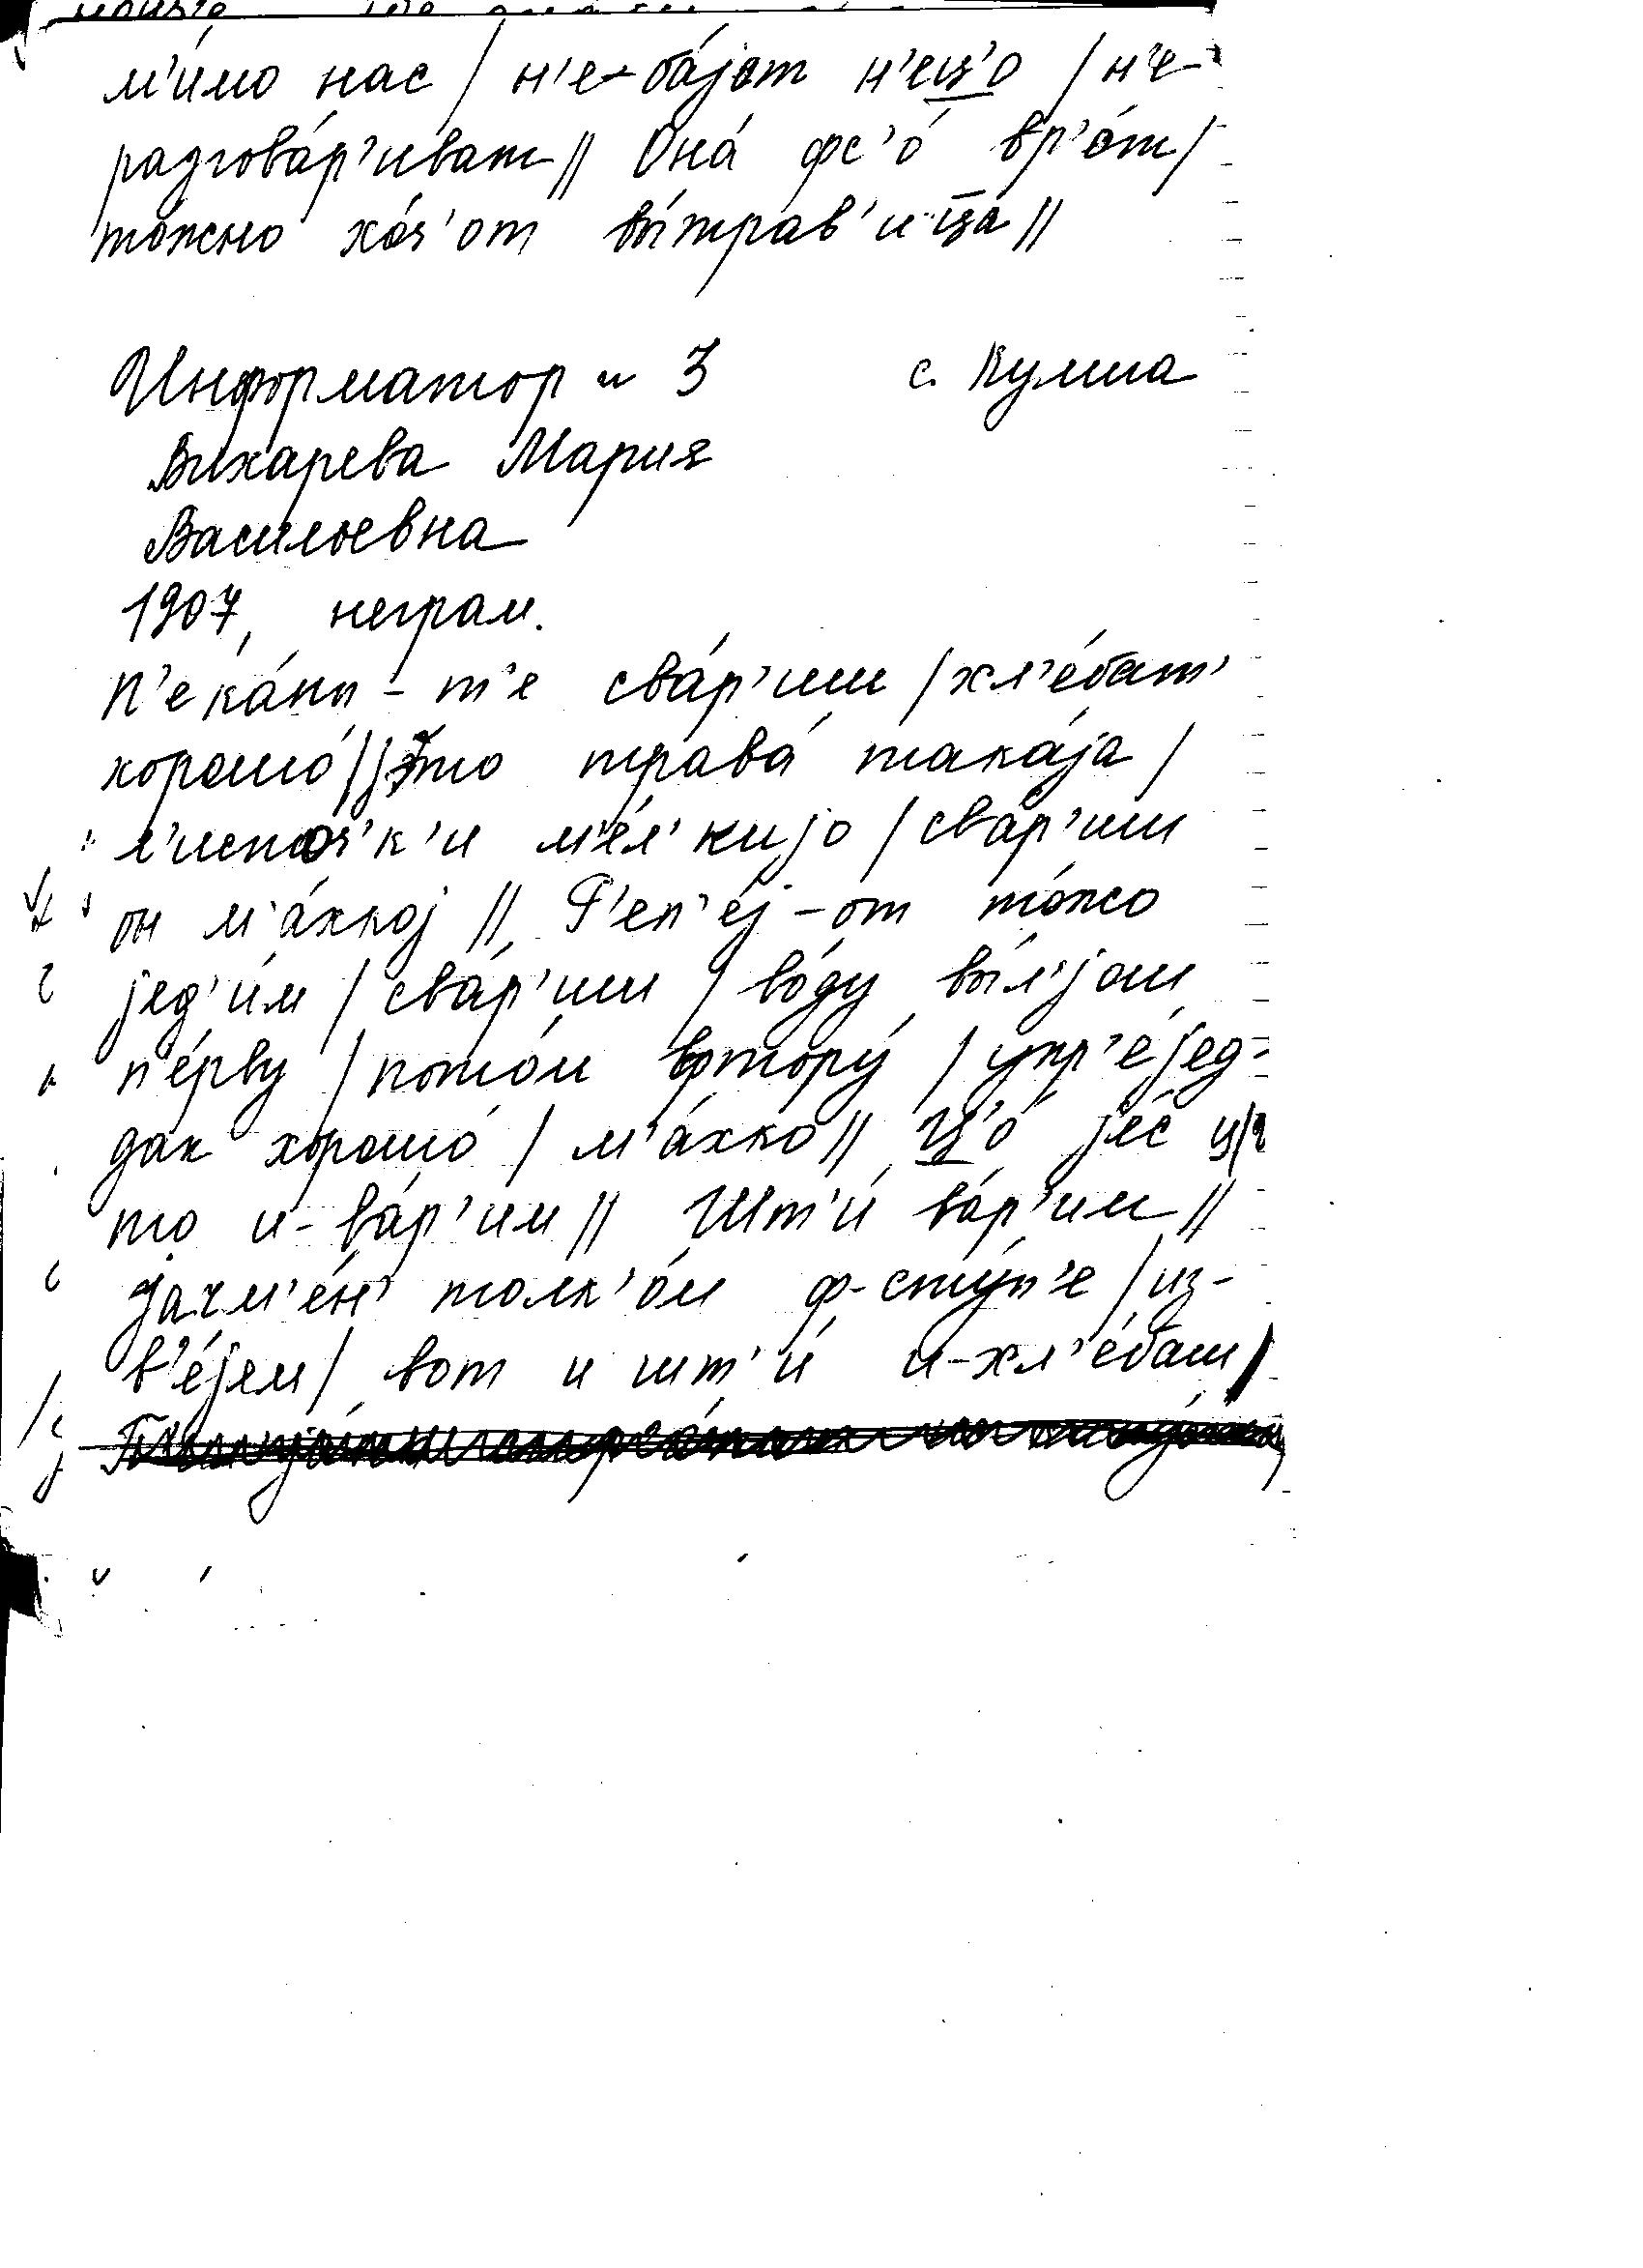 м'и́мо нас / н'е-ба́јот н'ец'о / н'е-
разгова́р'иват // Она́ фс'о́ вр'о́т /
то́жно хо́ч'от вы́трав'ица //
Информатор - 3 с. Кулига
Вихарева Мария
Васильевна
1907, неграм.
П'ека́ны-т'е сва́р'иш / хл'е́бат'
хорошо́ // э́то трава́ така́ја /
л'исто́ч'к'и м'е́л'кијо / сва́р'иш
он м'а́хкој // Р'еп'е́ј-от то́жо
јед'и́м / сва́р'иш / во́ду вы́л'још
п'е́рву / пото́м втору́ / упр'е́јед-
дак хорошо́ / м'а́хко // Ц'о́ јес'
то и-ва́р'им // Шт'и́ ва́р'им //
Јачм'е́н' толк'о́м ф-сту́п'е / из-
в'е́јем / вот и шт'и́ и-хл'е́баш /